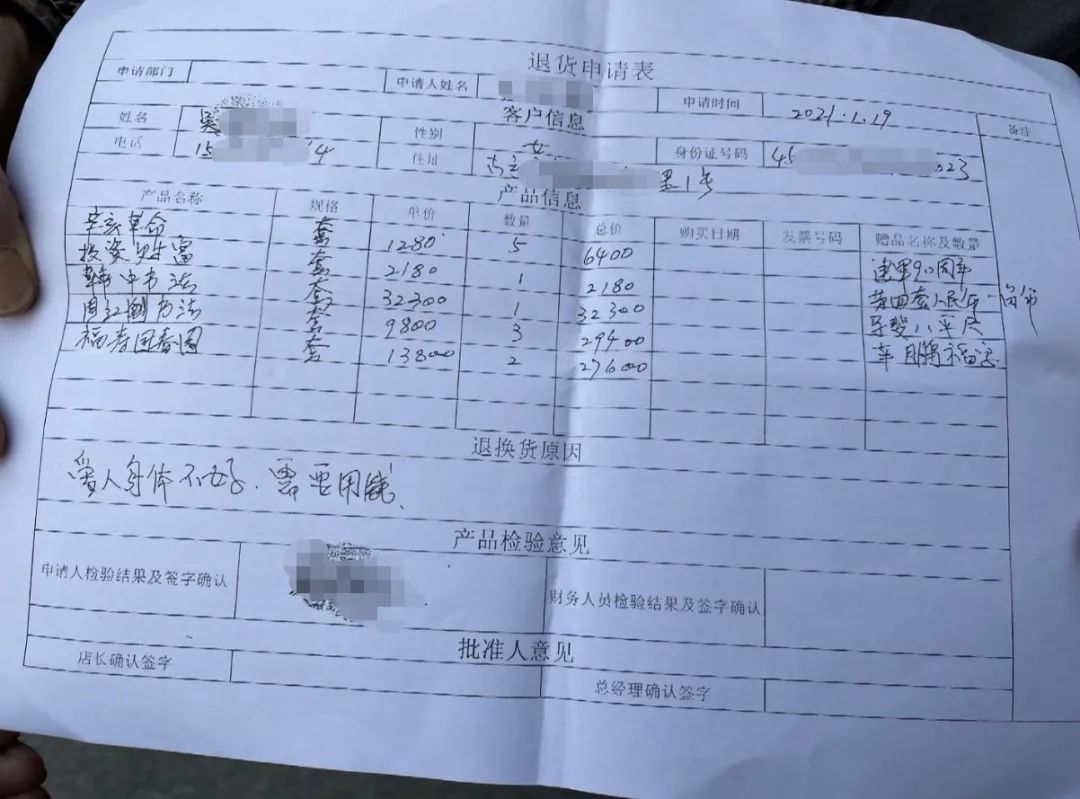 退货申请表
申请部门 申请人姓名 申请时间 2021.1.19 备注
客户信息
姓名 吴 性别 女 身份证号码 45 023
电话 15 14 住址 里1号
产品信息
产品名称 规格 单价 数量 总价 购买日期 发票号码 赠品名称及数量
辛亥革命 套 1280 5 6400 建军90周年
投资财富 套 2180 1 2180 第四套人民币
书法 套 32300 1 32300 八平尺
书法 套 9800 3 29400 福字
福春图春图 套 13800 2 27600
退换货原因
爱人身体不好.需要用钱.
产品检验意见
申请人检验结果及签字确认 财务人员检验结果及签字确认
批准人意见
店长确认签字 总经理确认签字